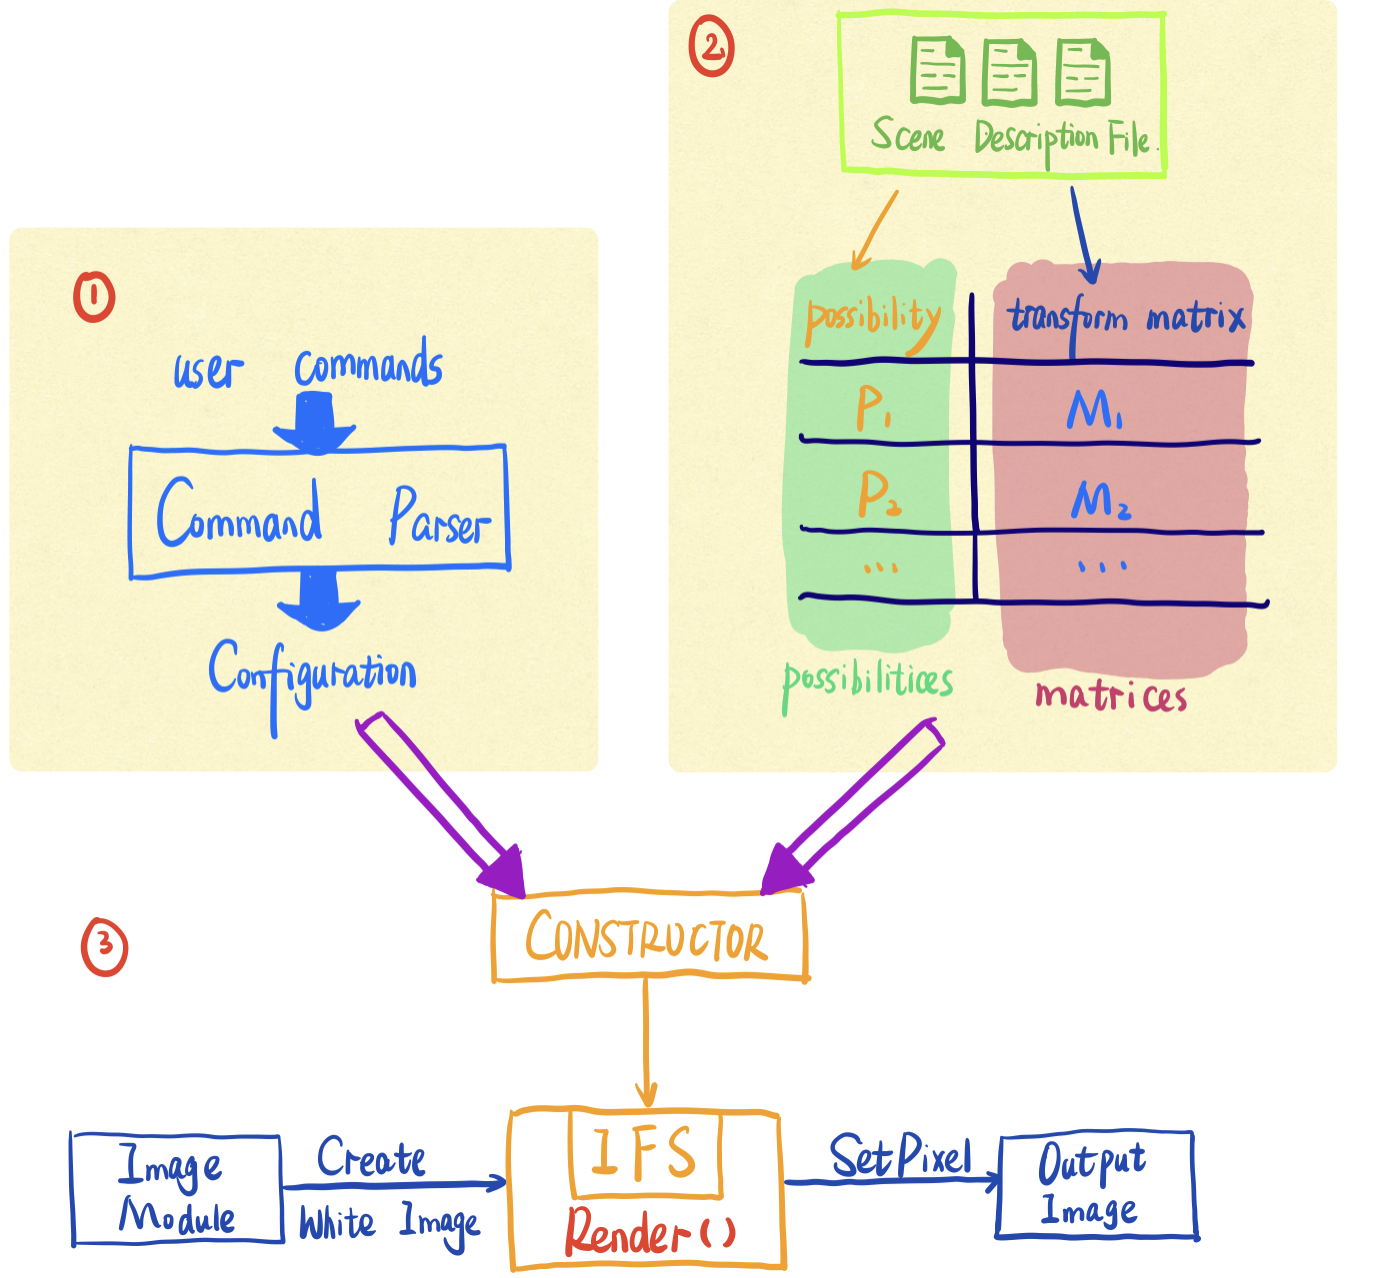 ①
user commands
Command Parser
Configuration
②
Scene Description File.
possibility transform matrix
P₁ M₁
P₂ M₂
... ...
possibilitices matrices
③
CONSTRUCTOR
Image
Module
Create
White Image
IFS
Render()
SetPixel
Output
Image